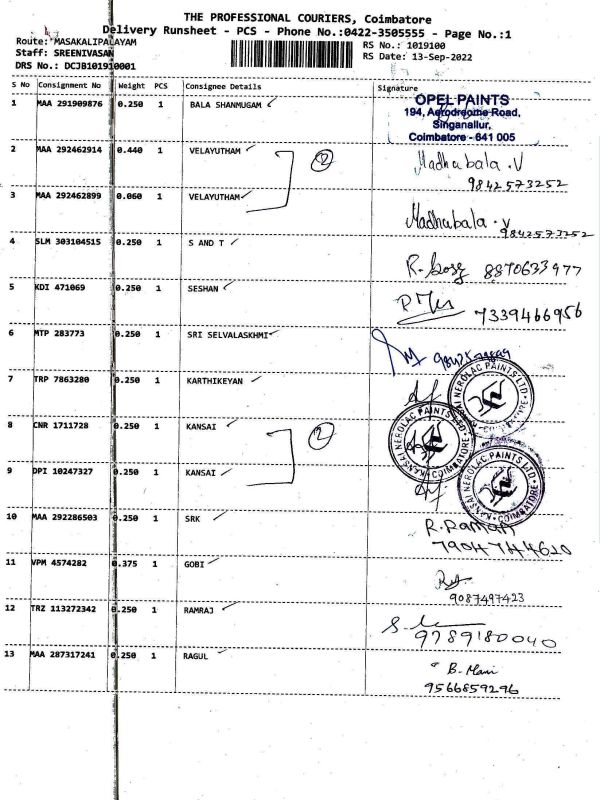 THE PROFESSIONAL COURIERS, Coimbatore
Delivery Runsheet - PCS - Phone No.:0422-3505555 - Page No.:1
Route: MASAKALIPALAYAM
Staff: SREENIVASAN
DRS No.: DCJB101910001
RS No.: 1019100
RS Date: 13-Sep-2022
S No Consignment No Weight PCS Consignee Details Signature
1 MAA 291909876 0.250 1 BALA SHANMUGAM ✓
OPEL PAINTS
194, Aerodreome Road,
Singanallur,
Coimbatore - 641 005
2 MAA 292462914 0.440 1 VELAYUTHAM ✓ 2 Madhubala . V
9842573252
3 MAA 292462899 0.060 1 VELAYUTHAM ✓ Madhubala . V
9842573252
4 SLM 303104515 0.250 1 S AND T ✓ 8870633977
5 KDI 471069 0.250 1 SESHAN ✓ 7339466956
6 MTP 283773 0.250 1 SRI SELVALASKHMI ✓
7 TRP 7863280 0.250 1 KARTHIKEYAN ✓
KANSAI NEROLAC PAINTS LTD. COIMBATORE
8 CNR 1711728 0.250 1 KANSAI ✓ 2
KANSAI NEROLAC PAINTS LTD. COIMBATORE
9 DPI 10247327 0.250 1 KANSAI ✓
KANSAI NEROLAC PAINTS LTD. COIMBATORE
10 MAA 292286503 0.250 1 SRK ✓ R. Raman
7904744620
11 VPM 4574282 0.375 1 GOBI ✓
9087497423
12 TRZ 113272342 0.250 1 RAMRAJ ✓
9789180040
13 MAA 287317241 0.250 1 RAGUL ✓ B. Mani
9566859296